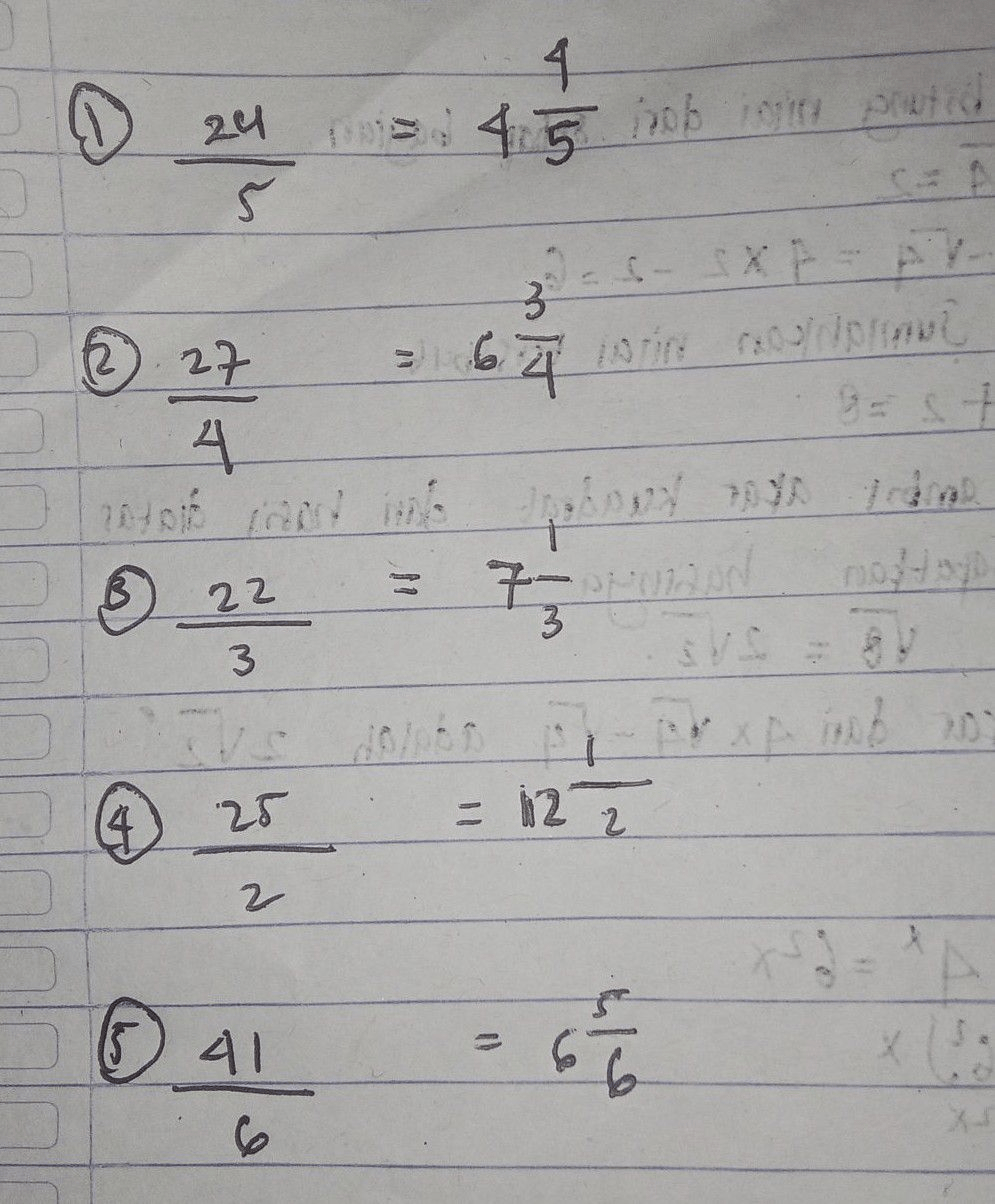 ① 24/5 = 4 4/5
② 27/4 = 6 3/4
③ 22/3 = 7 1/3
④ 25/2 = 12 1/2
⑤ 41/6 = 6 5/6